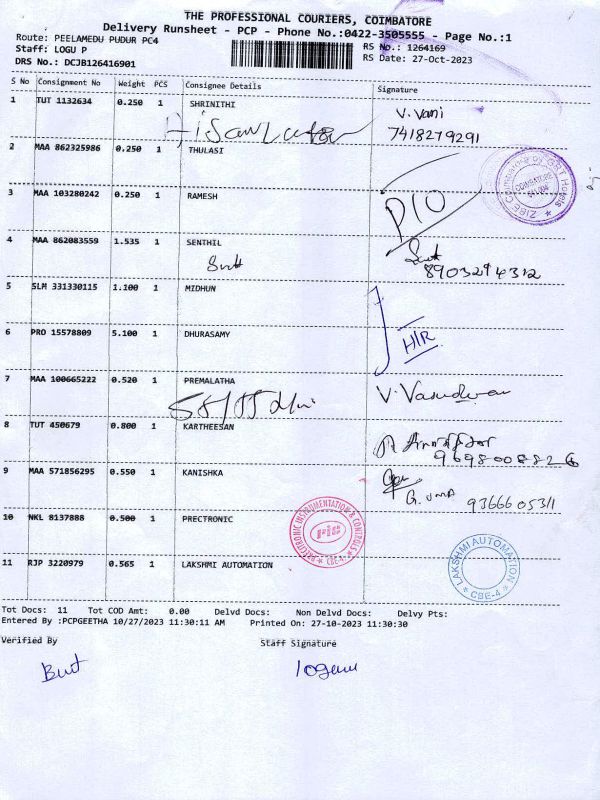 THE PROFESSIONAL COURIERS, COIMBATORE
Delivery Runsheet - PCP - Phone No.:0422-3505555 - Page No.:1
Route: PEELAMEDU PUDUR PC4
RS No.: 1264169
Staff: LOGU P
RS Date: 27-Oct-2023
DRS No.: DCJB126416901
S No Consignment No Weight PCS Consignee Details Signature
1 TUT 1132634 0.250 1 SHRINITHI V. Vani
7418279291
2 MAA 862325986 0.250 1 THULASI
COIMBATORE
3 MAA 103280242 0.250 1 RAMESH P/O
4 MAA 862083559 1.535 1 SENTHIL
8903294312
5 SLM 331330115 1.100 1 MIDHUN
6 PRO 15578809 5.100 1 DHURASAMY H/R
7 MAA 100665222 0.520 1 PREMALATHA V. Vasudevan
8 TUT 450679 0.800 1 KARTHEESAN
9698008826
9 MAA 571856295 0.550 1 KANISHKA
G. UMA 9366605311
10 NKL 8137888 0.500 1 PRECTRONIC
PRECTRONIC INSTRUMENTATION & CONTROLS
PIC
CBE-4
11 RJP 3220979 0.565 1 LAKSHMI AUTOMATION
LAKSHMI AUTOMATION
CBE-4
Tot Docs: 11 Tot COD Amt: 0.00 Delvd Docs: Non Delvd Docs: Delvy Pts:
Entered By :PCPGEETHA 10/27/2023 11:30:11 AM Printed On: 27-10-2023 11:30:30
Verified By Staff Signature